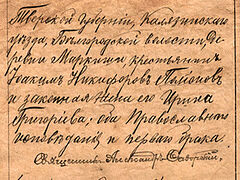 Тверской Губерніи, Калязинскаго
уѣзда, Белгородской волости, де-
ревни Маркиши крестьянинъ
Іоакимъ Никифоровъ
и законная жена его Ирина
Григорьева; оба Православнаго
исповѣданія и перваго брака.
Священникъ Александръ